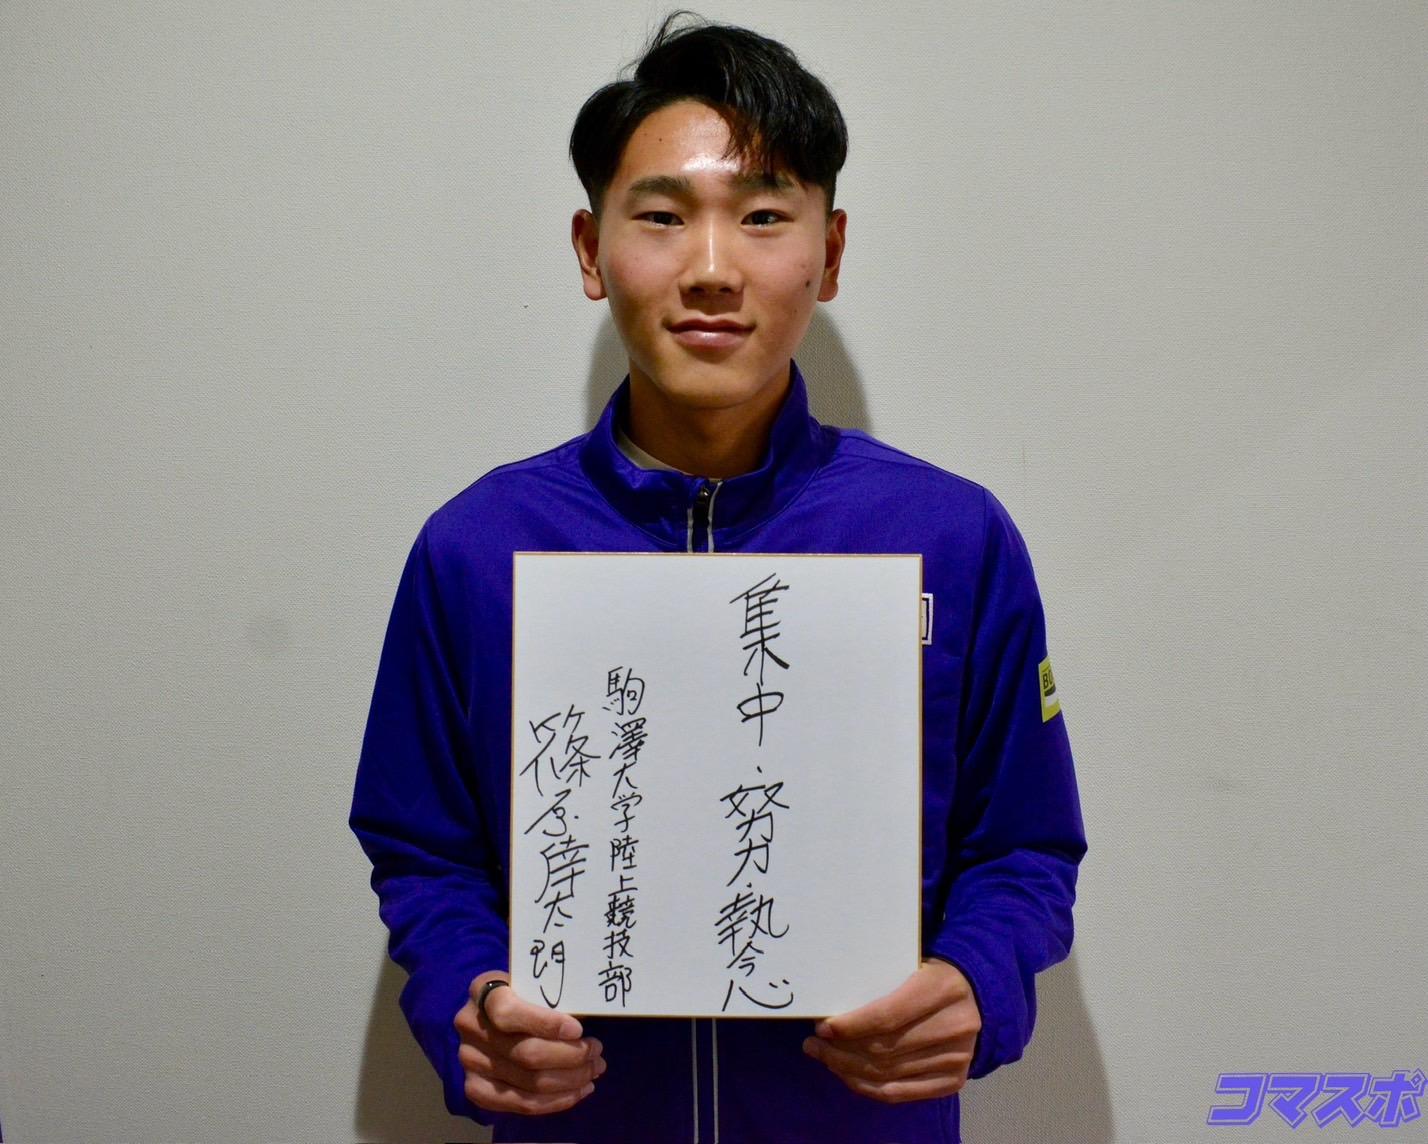 集中・努力・執念
駒澤大学陸上競技部
篠原倖太朗
コマスポ